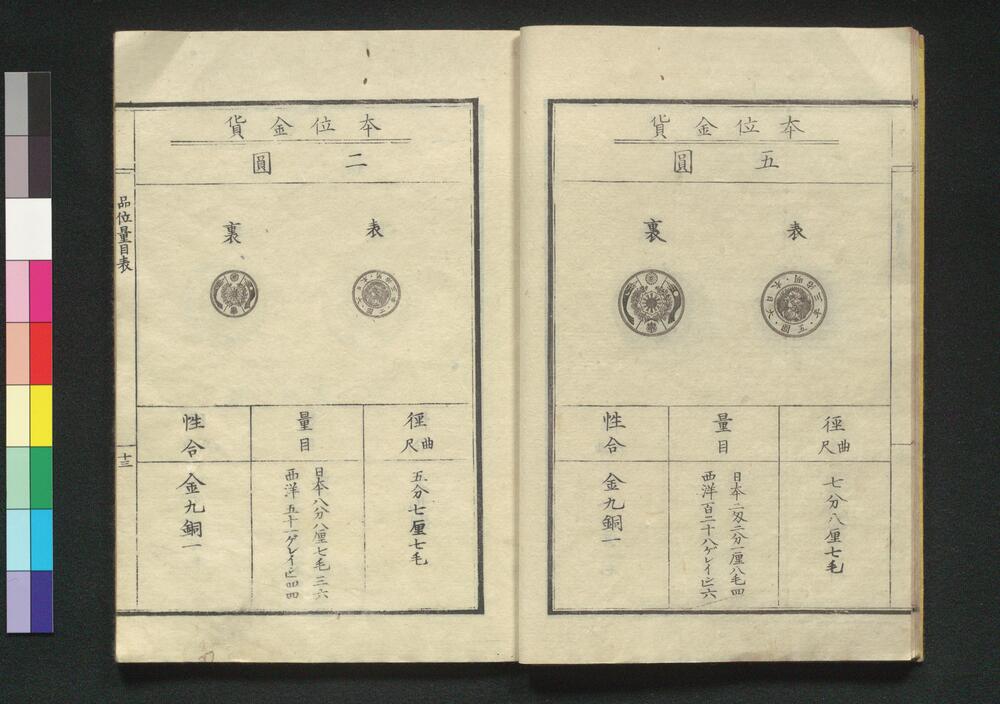 本位金貨
五圓
表
裏
三年・五圓・大日本・明治
徑曲尺
七分八厘七毛
量目
日本二匁二分一厘八毛四
西洋百二十八ゲレイン六
性合
金九銅一
本位金貨
二圓
表
裏
徑曲尺
五分七厘七毛
量目
日本八分八厘七毛三六
西洋五十一ゲレイン四四
性合
金九銅一
品位量目表
十三